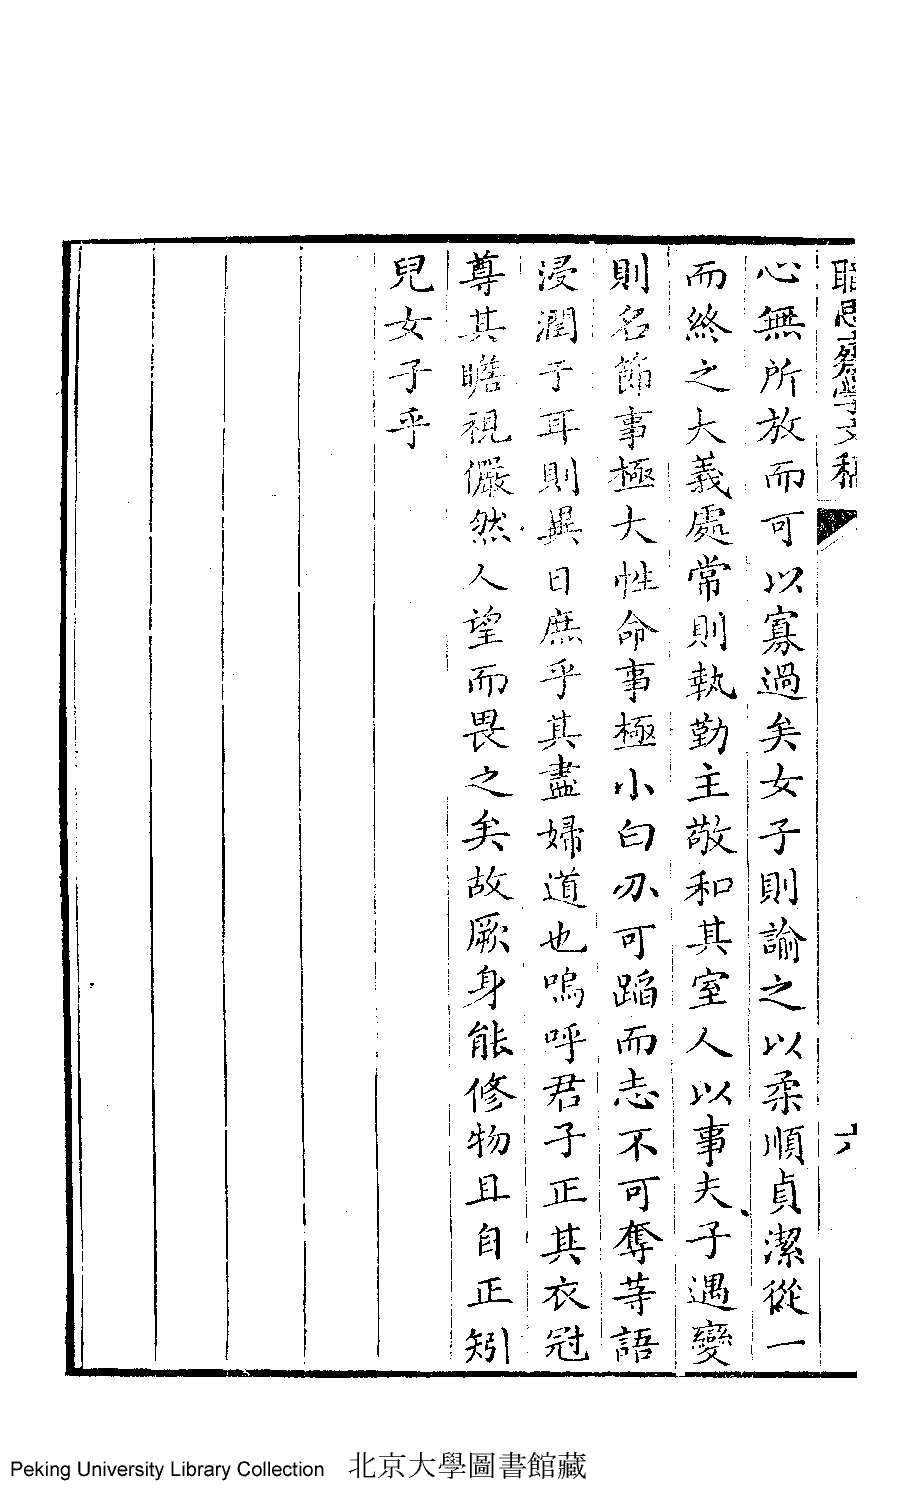 職思齋學文稿
六
心無所放而可以寡過矣女子則諭之以柔順貞潔從一
而終之大義處常則執勤主敬和其室人以事夫子遇變
則名節事極大性命事極小白刃可蹈而志不可奪等語
浸潤于耳則異日庶乎其盡婦道也嗚呼君子正其衣冠
尊其瞻視儼然人望而畏之矣故厥身能修物且自正矧
兒女子乎
Peking University Library Collection 北京大學圖書館藏